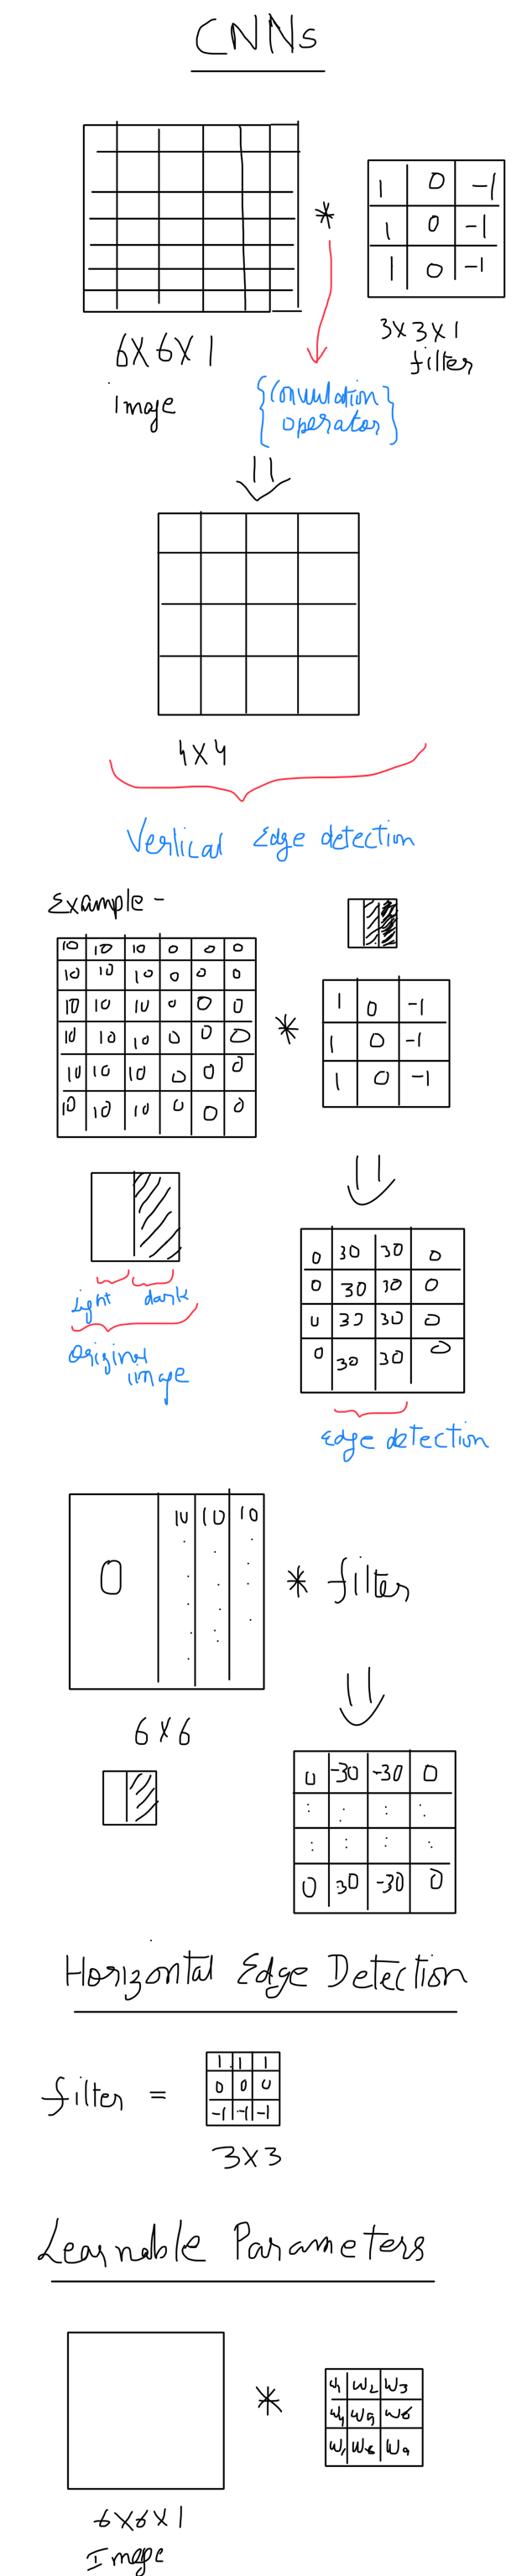 CNNs
*
1 0 -1
1 0 -1
1 0 -1
6X6X1
image
3X3X1
filter
{Convulation
operator}
4X4
Vertical Edge detection
Example -
10 10 10 0 0 0
10 10 10 0 0 0
10 10 10 0 0 0
10 10 10 0 0 0
10 10 10 0 0 0
10 10 10 0 0 0
*
1 0 -1
1 0 -1
1 0 -1
light dark
original
image
0 30 30 0
0 30 30 0
0 30 30 0
0 30 30 0
Edge detection
0 10 10 10
* filter
6 X 6
0 -30 -30 0
0 -30 -30 0
Horizontal Edge Detection
filter =
1 1 1
0 0 0
-1 -1 -1
3X3
Learnable Parameters
*
W2 W3
W6
W9
6X6X1
Image